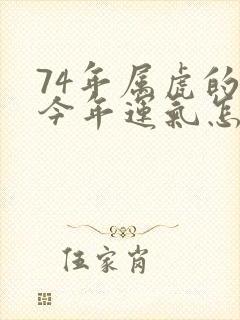 74年属虎的
今年运气怎
伍家肖